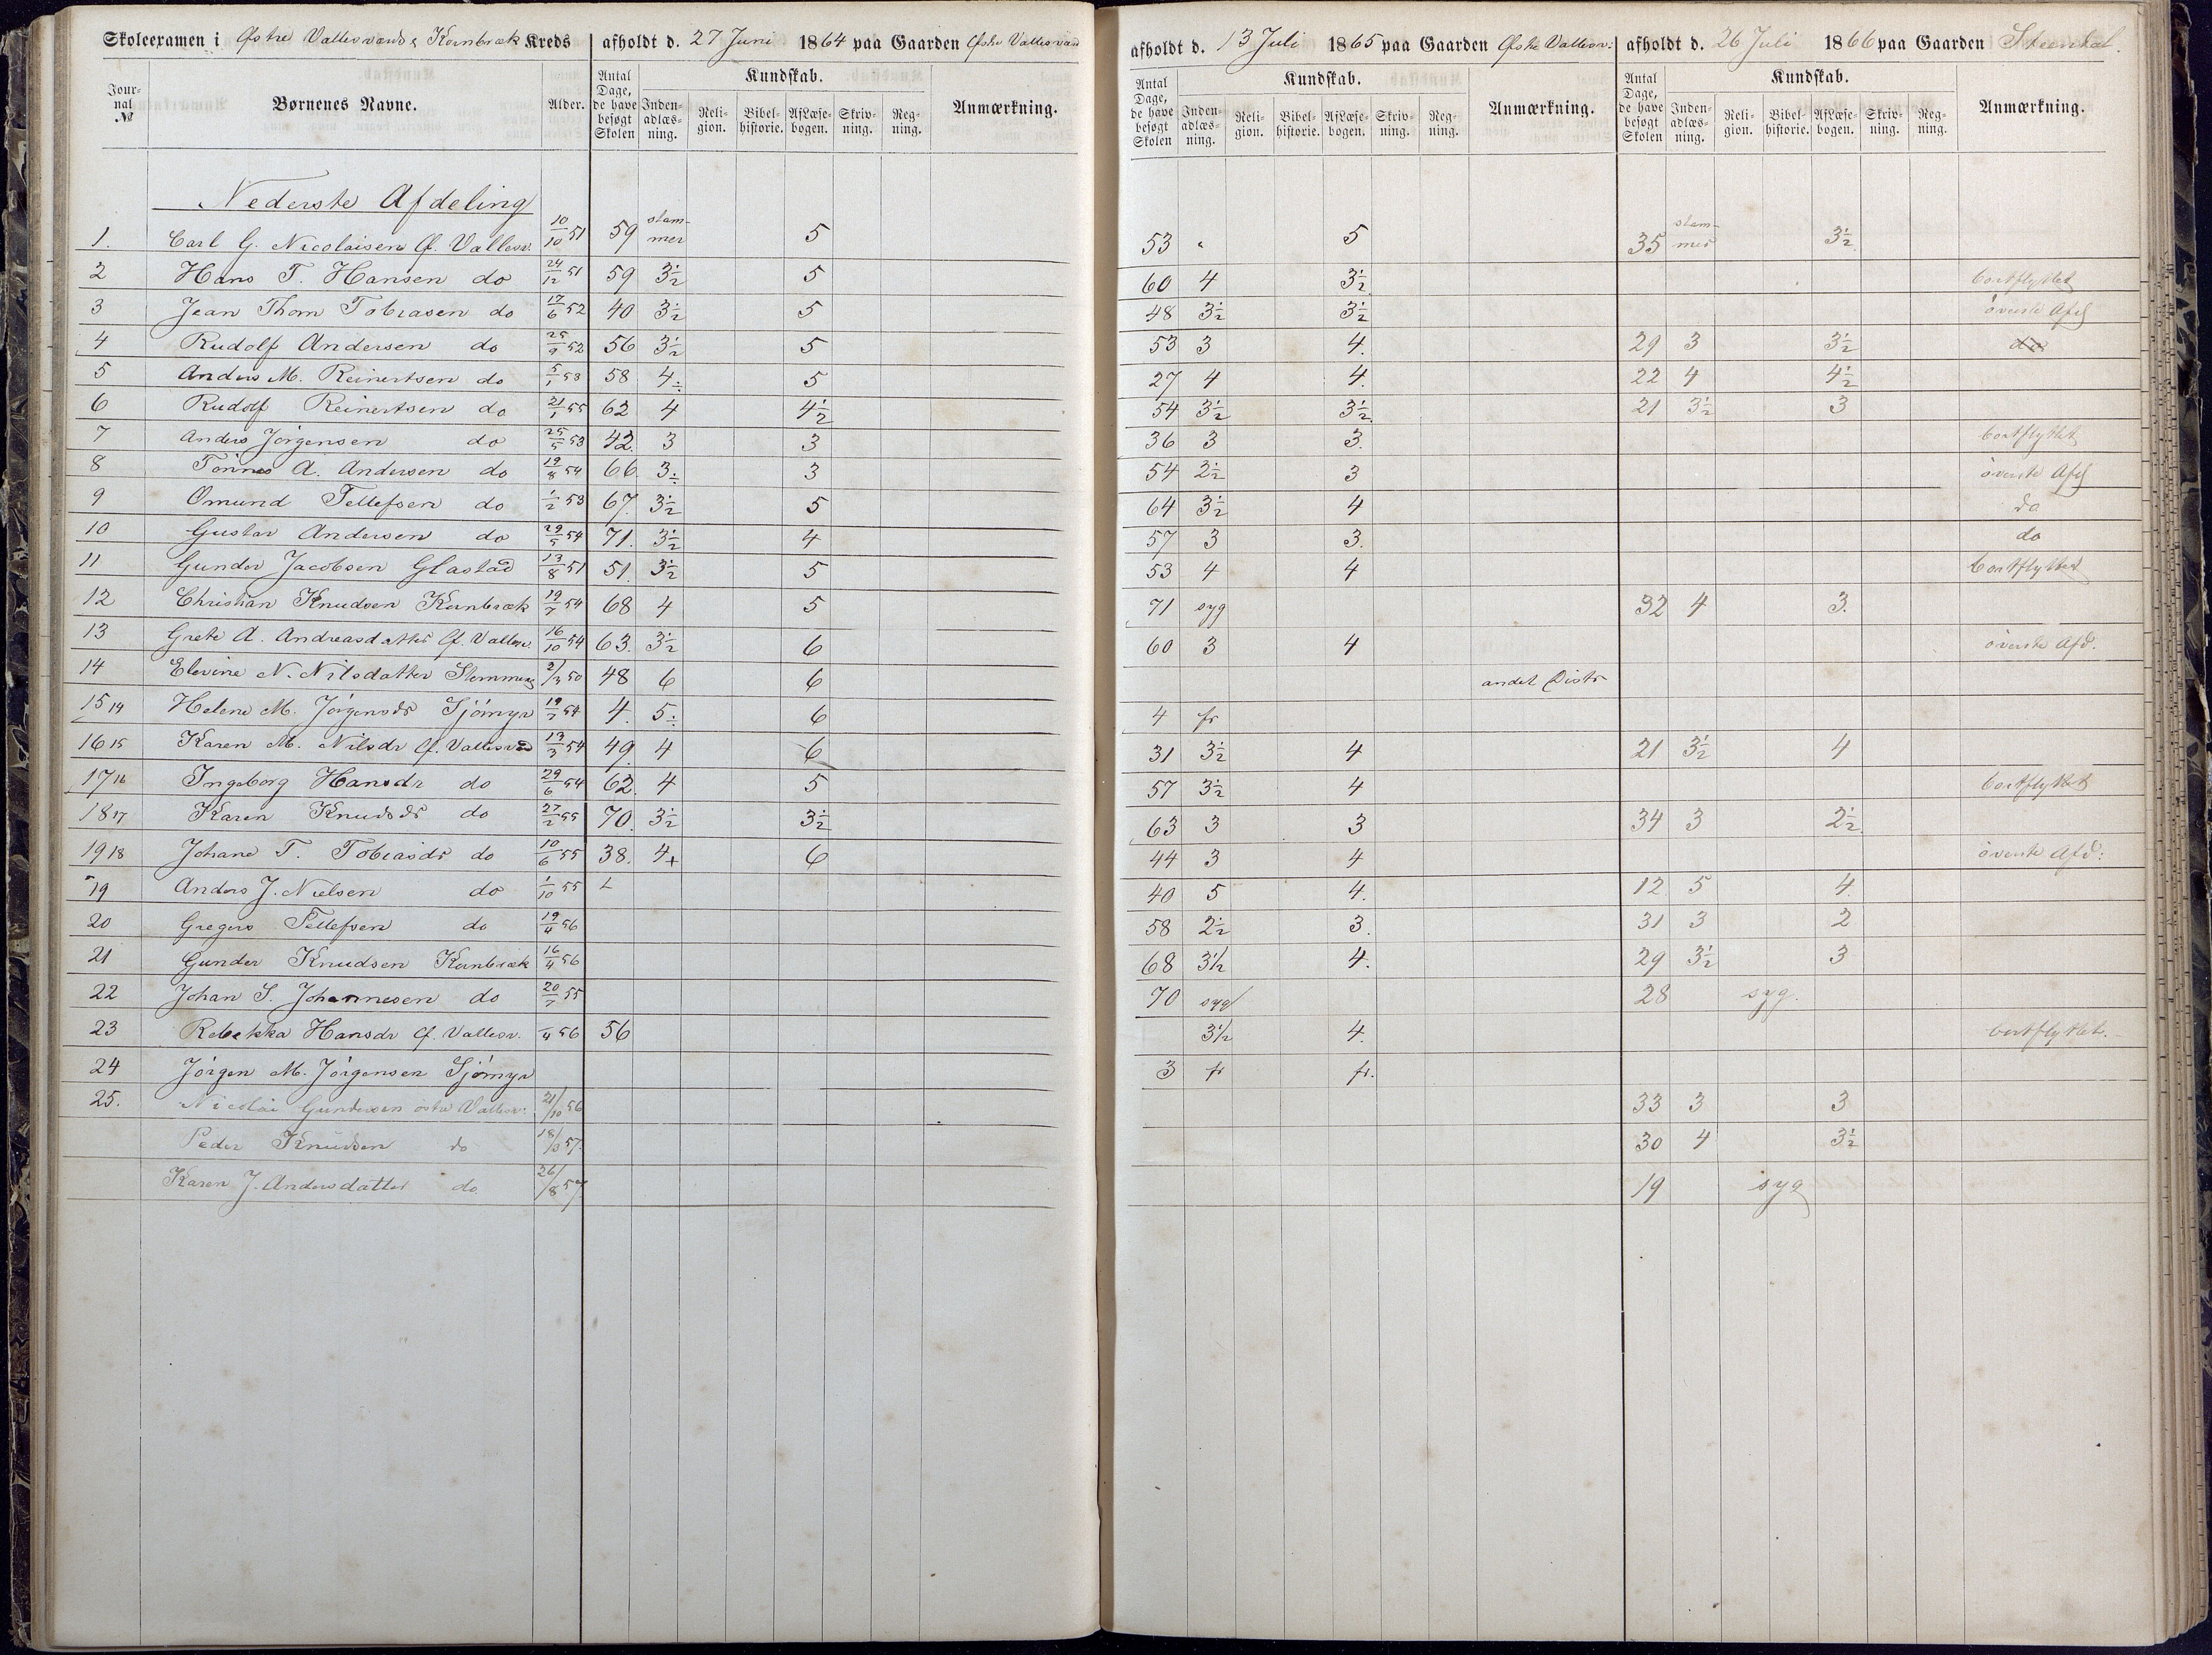 Skoleexamen i Østre Vallesværds & Kornbræk Kreds afholdt d. 27 Juni 1864 paa Gaarden Østre Vallesvær
Journal № Børnenes Navne. Alder. Antal Dage, de have besøgt Skolen Kundskab. Indenadlæsning. Religion. Bibelhistorie. Af Læsebogen. Skrivning. Regning. Anmærkning.
Nederste Afdeling
1. Carl G. Nicolaisen Ø. Vallesv. 10/10 51 59 stammer 5
2 Hans T. Hansen do 24/12 51 59 3½ 5
3 Jean Thom Tobiasen do 17/6 52 40 3½ 5
4 Rudolf Andersen do 25/9 52 56 3½ 5
5 Anders M. Reinertsen do 5/1 53 58 4÷ 5
6 Rudolf Reinertsen do 21/1 55 62 4 4½
7 Anders Jörgensen do 25/5 53 42 3 3
8 Tönnes A. Andersen do 19/8 54 66 3÷ 3
9 Omund Tellefsen do 1/2 53 67 3½ 5
10 Gustav Andersen do 29/5 54 71 3½ 4
11 Gunder Jacobsen Glastad 13/8 51 51 3½ 5
12 Christian Knudsen Kornbræk 19/7 54 68 4 5
13 Grete A. Andreasdatter Ø. Vallesv. 16/10 54 63 3½ 6
14 Elevine N. Nilsdatter Slemmung 2/3 50 48 6 6
15 14 Helene M. Jörgensdr Sjömyr 19/7 54 4 5÷ 6
16 15 Karen M. Nilsdr Ø. Vallesværd 13/3 54 49 4 6
17 16 Ingeborg Hansdr do 29/6 54 62 4 5
18 17 Karen Knudsdr do 27/2 55 70 3½ 3½
19 18 Johane T. Tobiasdr do 10/6 55 38 4+ 6
19 Anders J. Nielsen do 1/10 55
20 Gregers Tellefsen do 19/4 56
21 Gunder Knudsen Kornbræk 16/4 56
22 Johan S. Johannesen do 20/7 55
23 Rebekka Hansdr Ø. Vallesv. /4 56 56
24 Jörgen M. Jörgensen Sjömyr
25. Nicolai Gundersen östre Vallesv: 21/10 56
Peder Knudsen do 18/3 57
Karen J. Andersdatter do 26/8 57
afholdt d. 13 Juli 1865 paa Gaarden Østre Vallesv:
Antal Dage, de have besøgt Skolen Kundskab. Indenadlæsning. Religion. Bibelhistorie. Af Læsebogen. Skrivning. Regning. Anmærkning.
53 " 5
60 4 3½
48 3½ 3½
53 3 4.
27 4 4.
54 3½ 3½
36 3 3.
54 2½ 3
64 3½ 4
57 3 3.
53 4 4
71 syg
60 3 4
andet Distr
4 fr
31 3½ 4
57 3½ 4
63 3 3
44 3 4
40 5 4.
58 2½ 3.
68 3½ 4.
70 syg
3½ 4.
3 fr fr.
afholdt d. 26 Juli 1866 paa Gaarden Steendal.
Antal Dage, de have besøgt Skolen Kundskab. Indenadlæsning. Religion. Bibelhistorie. Af Læsebogen. Skrivning. Regning. Anmærkning.
35 stammer 3½
bortflyttet
överste Afd
29 3 3½ do
22 4 4½
21 3½ 3
bortflyttet
överste Afd
do
do
bortflyttet
32 4 3.
överste Afd.
21 3½ 4
bortflyttet
34 3 2½
överste Afd:
12 5 4.
31 3 2
29 3½ 3
28 syg.
bortflyttet.
33 3 3
30 4 3½
19 syg